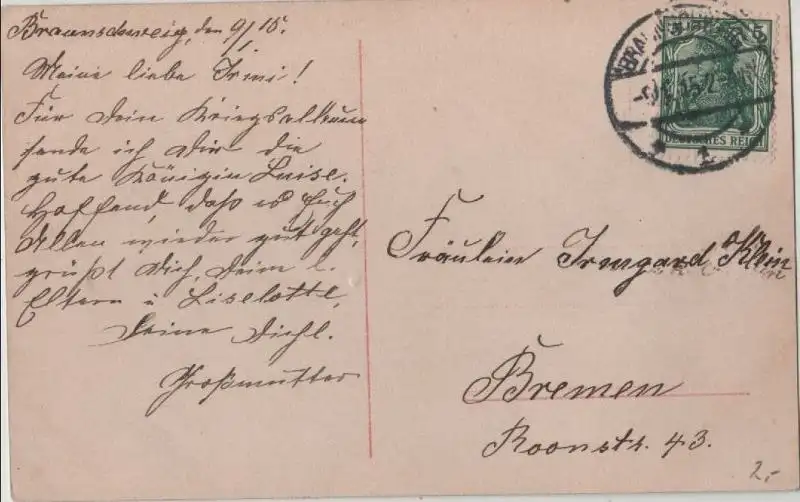 Braunschweig, den 9/1. 15.
Meine liebe Irmi!
Für Dein Kriegsalbum
sende ich Dir die
gute Königin Luise.
Hoffend, daß es Euch
Allen wieder gut geht,
grüßt Dich, Deine l.
Eltern u Liselotte,
Deine Dichl.
Großmutter
BRAUNSCHWEIG
1
5
DEUTSCHES REICH
Fräulein Irmgard Klein
Bremen
Roonstr. 43.
2,-